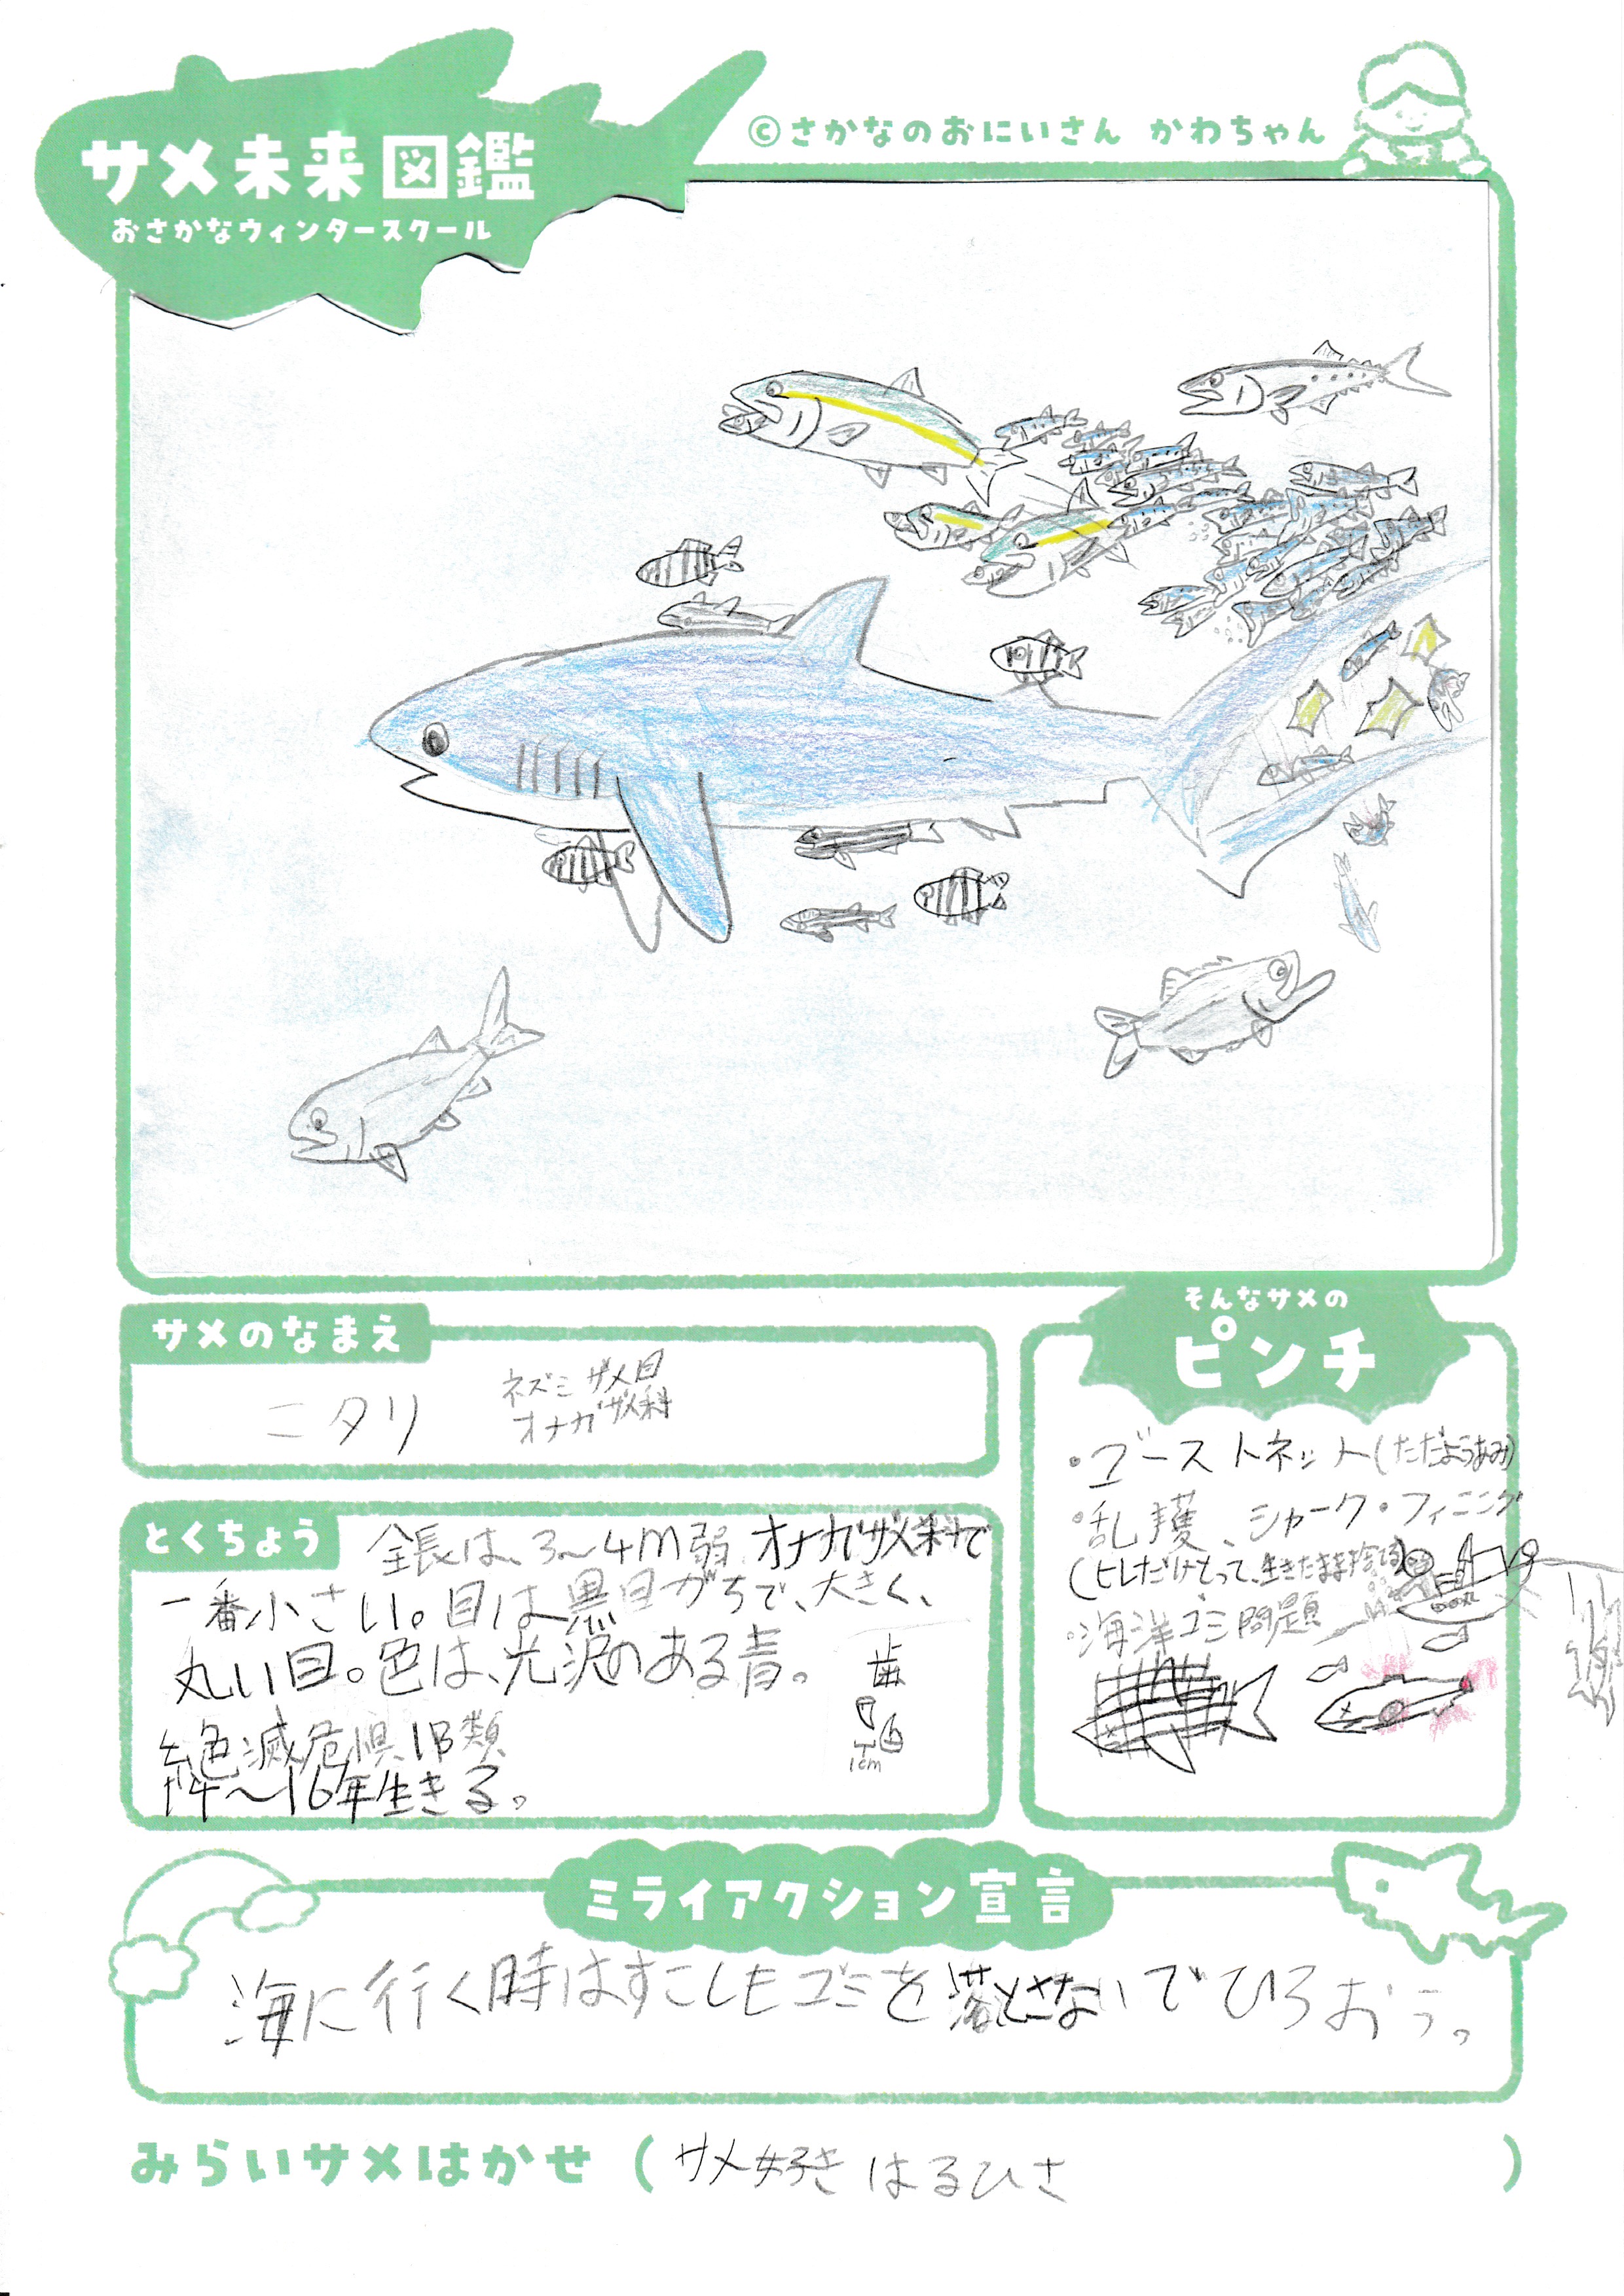 サメ未来図鑑
おさかなウィンタースクール
©さかなのおにいさん かわちゃん
サメのなまえ
ニタリ
ネズミザメ目
オナガザメ科
とくちょう
全長は、3〜4m弱 オナガザメ科で
一番小さい。目は黒目がちで、大きく、
丸い目。色は、光沢のある青。
絶滅危惧IB類
14〜16年生きる。
歯
1cm
そんなサメの
ピンチ
・ゴーストネット(ただようあみ)
・乱獲、シャーク・フィニング
(ヒレだけとって、生きたまま捨てる)
・海洋ゴミ問題
ミライアクション宣言
海に行く時はすこしもゴミを落とさないでひろおう。
みらいサメはかせ (サメ好きはるひさ)